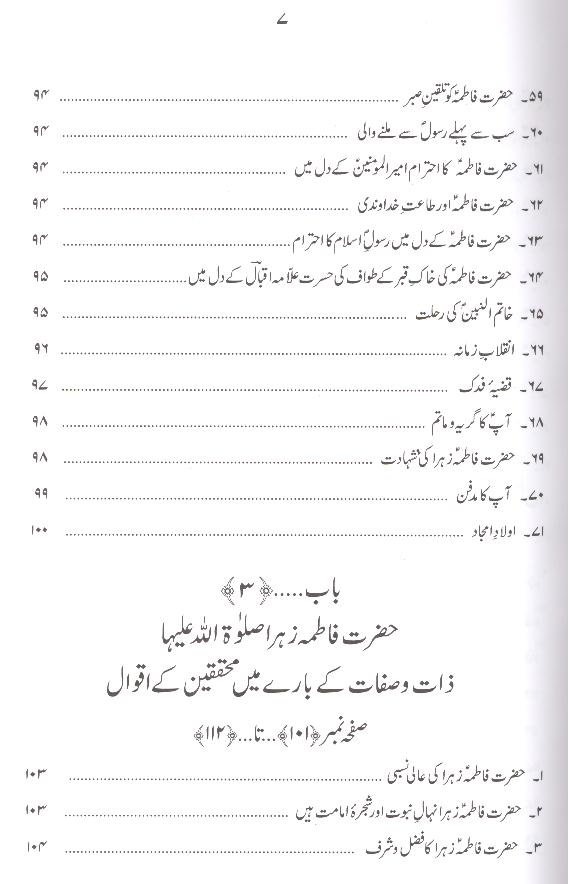 ۷
۵۹۔ حضرت فاطمہؑ کو تلقینِ صبر ........ ۹۴
۶۰۔ سب سے پہلے رسولؐ سے ملنے والی ........ ۹۴
۶۱۔ حضرت فاطمہؑ کا احترام امیرالمومنینؑ کے دل میں ........ ۹۴
۶۲۔ حضرت فاطمہؑ اور طاعتِ خداوندی ........ ۹۴
۶۳۔ حضرت فاطمہؑ کے دل میں رسولِؐ اسلام کا احترام ........ ۹۴
۶۴۔ حضرت فاطمہؑ کی خاکِ قبر کے طواف کی حسرت علّامہ اقبالؔ کے دل میں ........ ۹۵
۶۵۔ خاتم النبیینؐ کی رحلت ........ ۹۵
۶۶۔ انقلابِ زمانہ ........ ۹۶
۶۷۔ قضیۂ فدک ........ ۹۷
۶۸۔ آپؑ کا گریہ و ماتم ........ ۹۸
۶۹۔ حضرت فاطمہؑ زہرا کی شہادت ........ ۹۸
۷۰۔ آپ کا مدفن ........ ۹۹
۷۱۔ اولادِ امجاد ........ ۱۰۰
باب.....﴿۳﴾
حضرت فاطمہ زہرا صلوٰۃ اللہ علیہا
ذات و صفات کے بارے میں محققین کے اقوال
صفحہ نمبر ﴿۱۰۱﴾...تا...﴿۱۱۲﴾
۱۔ حضرت فاطمہؑ زہرا کی عالی نسبی ........ ۱۰۳
۲۔ حضرت فاطمہؑ زہرا نہالِ نبوت اور شجرۂ امامت ہیں ........ ۱۰۳
۳۔ حضرت فاطمہؑ زہرا کا فضل و شرف ........ ۱۰۴